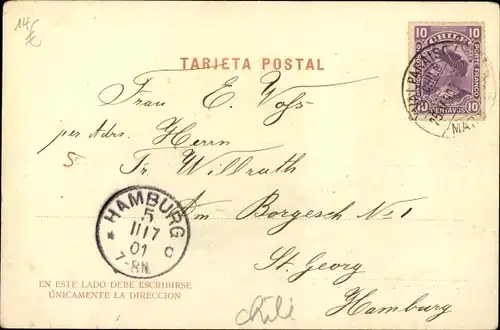 14,-
10 CHILE 10
TARJETA POSTAL
10 CENTAVOS 10
Frau E. Voss
per Adrs. Herrn
S.
Fr. Willrath
HAMBURG
5
III 7
01
7-8N.
* C
Am Borgesch No 1
St. Georg
Hamburg
EN ESTE LADO DEBE ESCRIBIRSE
ÚNICAMENTE LA DIRECCION
chili